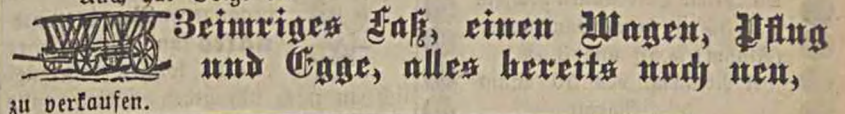 3eimriges Faß, einen Wagen, Pflug
und Egge, alles bereits noch neu,
zu verkaufen.